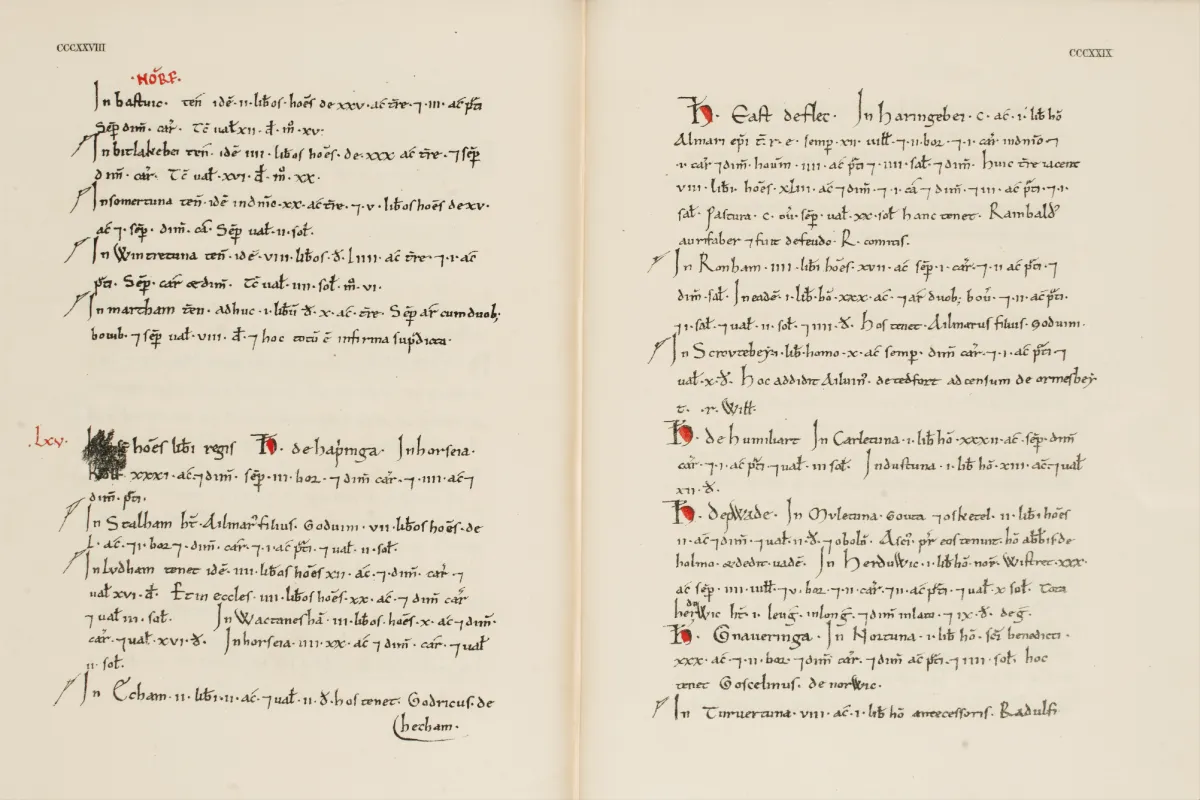 CCCXXVIII
·NORF·
In bastuic· teñ idē· ii· lib̄os· hoēs· de xxv· ac t̄re· ⁊ iii· ac p̄ti
Sēp dim̄· car̄· Tc̄ ual& xii· đ· m̊· xv·
In bitlakebei teñ· idē iiii· lib̄os hoēs· de· xxx ac t̄re· ⁊ sēp
dim̄· car̄· Tc̄ ual· xvi· đ· m̊· xx·
In somertuna teñ· idē in dm̄io· xx· ac t̄re· ⁊ v· lib̄os hoēs de xv·
ac ⁊ sēp· dim̄· cā· Sēp ual· ii· sol·
In Wintretuna teñ· idē· viii· lib̄os· đ· Liiii· ac t̄re· ⁊ i· ac
p̄ti· Sēp· car̄ & dim̄· Tc̄ ual· iiii· sol· m̊· vi·
In martham teñ· adhuc· i· lib̄ū đ· x· ac t̄re· Sēp ar̄ cum duob;
bouib· ⁊ sēp ual· viii· đ· ⁊ hoc totū ē infirma sup̄dicta·
·Lxv· hoēs lib̄i regis H· de hapinga· In horseia·
xxxi· ac ⁊ dim̄· sēp· iii· bor· ⁊ dim̄ car̄· ⁊ iiii· ac ⁊
dim̄· p̄ti·
In Stalham ht̄· Ailmar' filius· Goduini· vii· lib̄os hoēs· de
L· ac· ⁊ i· bor ⁊· dim̄· car̄· ⁊ i· ac p̄ti· ⁊ ual· ii· sol·
In Ludham tenet idē· iiii· lib̄os hoēs xii· ac· ⁊· dim̄· car̄· ⁊
ual xvi· đ· Et in eccles· iiii· lib̄os hoēs· xx· ac· ⁊ dim̄ car̄
⁊ ual iii· sol· In Wactaneshā· iii· lib̄os· hoēs· x· ac ⁊ dim̄·
car̄· ⁊ ual· xvi· đ· In horseia· iiii· xx· ac ⁊ dim̄· car· ⁊ ual
ii· sol·
In Echam· ii· lib̄i· ii· ac· ⁊ ual· ii· đ· hos tenet· Godricus· de
Checham·
CCCXXIX
H· East deflec· In Haringebei· c· ac· i· lib̄ hō
Almari ep̄i t̄· r· e· semp· xii· uill· ⁊ ii· bor· ⁊ i· car̄ in dm̄io ⁊
i· car̄ ⁊ dim̄· houm̄· iiii· ac p̄ti· ⁊ iiii· sal· ⁊ dim̄· Huic t̄re iacent
viii· lib̄i· hoēs· xLiii· ac ⁊ dim̄· ⁊ i· cā ⁊ dim̄· ⁊ iii· ac p̄ti· ⁊ i·
sal· Pastura· c· ou̇· sēp· ual· xx· sol hanc tenet· Rambald'
aurifaber ⁊ fuit de feudo· R· comitis·
In Ronham· iiii· lib̄i hoēs xvii· ac sēp· i· car̄· ⁊ ii ac p̄ti ⁊
dim̄· sal· In eadē· i· lib̄· hō· xxx· ac· ⁊ ar̄ duob; bou· ⁊ ii· ac p̄ti·
⁊ i· sal· ⁊ ual· ii· sol· ⁊ iiii· đ· Hos tenet· Ailmarus filius· Goduini·
In Scroutebey· i· lib̄· homo· x· ac semp· dim̄ car̄· ⁊ i· ac p̄ti ⁊
ual· x· đ· Hoc addidit Ailuin'· de tedfort ad censum de ormesbey
t· ·r· Will·
H· de humiliart In Carletuna· i· lib̄ hō· xxxii· ac· sēp· dim̄
car̄· ⁊ i· ac p̄ti· ⁊ ual· iii sol· In dustuna· i· lib̄ hō· xiii· ac· ⁊ ual
xii· đ·
H· depWade· In Muletuna· Gouta ⁊ osketel· ii· lib̄i hoēs
ii· ac ⁊ dim̄· ⁊ ual· ii· đ· ⁊ obolū· p̄r eos tenuit· hō abb̄is de
holmo & dedit uadē· In HerduWic· i· lib̄ hō· Wistric· xxx·
ac sēp· iiii· uill· ⁊ v· bor· ⁊ ii· car̄· ⁊ ii· ac p̄ti· ⁊ ual· x sol· Tota
herdoWic ht̄· i· leug· in long· ⁊ dim̄ in lato· ⁊ ix· đ· de g·
H· Gnaueringa· In Nortuna· i· lib̄ hō· sc̄i benedicti·
xxx· ac· ⁊ ii· bor· ⁊ dim̄ car̄· ⁊ dim̄ ac p̄ti· ⁊ iiii· sol· hoc
tenet Goscelinus· de norWic·
In Turuertuna· viii· ac· i· lib̄ hō antecessoris· Radulfi